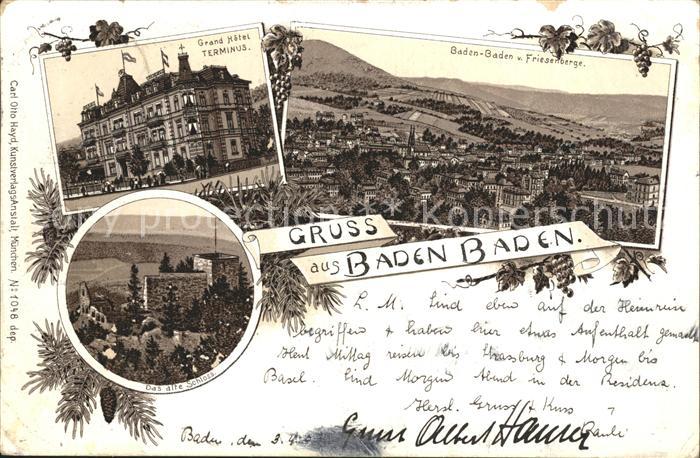 Grand Hôtel
TERMINUS.
Baden-Baden v. Friesenberge.
Carl Otto Hayd, Kunstverlags Anstalt, München. No: 1046 dep.
copy protection & Kopierschutz
GRUSS
aus BADEN BADEN.
Das alte Schloss.
L. M. Sind eben auf der Heimreise
begriffen & haben hier etwas Aufenthalt gemacht
Heut Mittag reisen bis Strassburg & Morgen bis
Basel. Sind Morgen Abend in der Residenz.
Herzl. Gruss & Kuss
Baden, den 3.
Albert